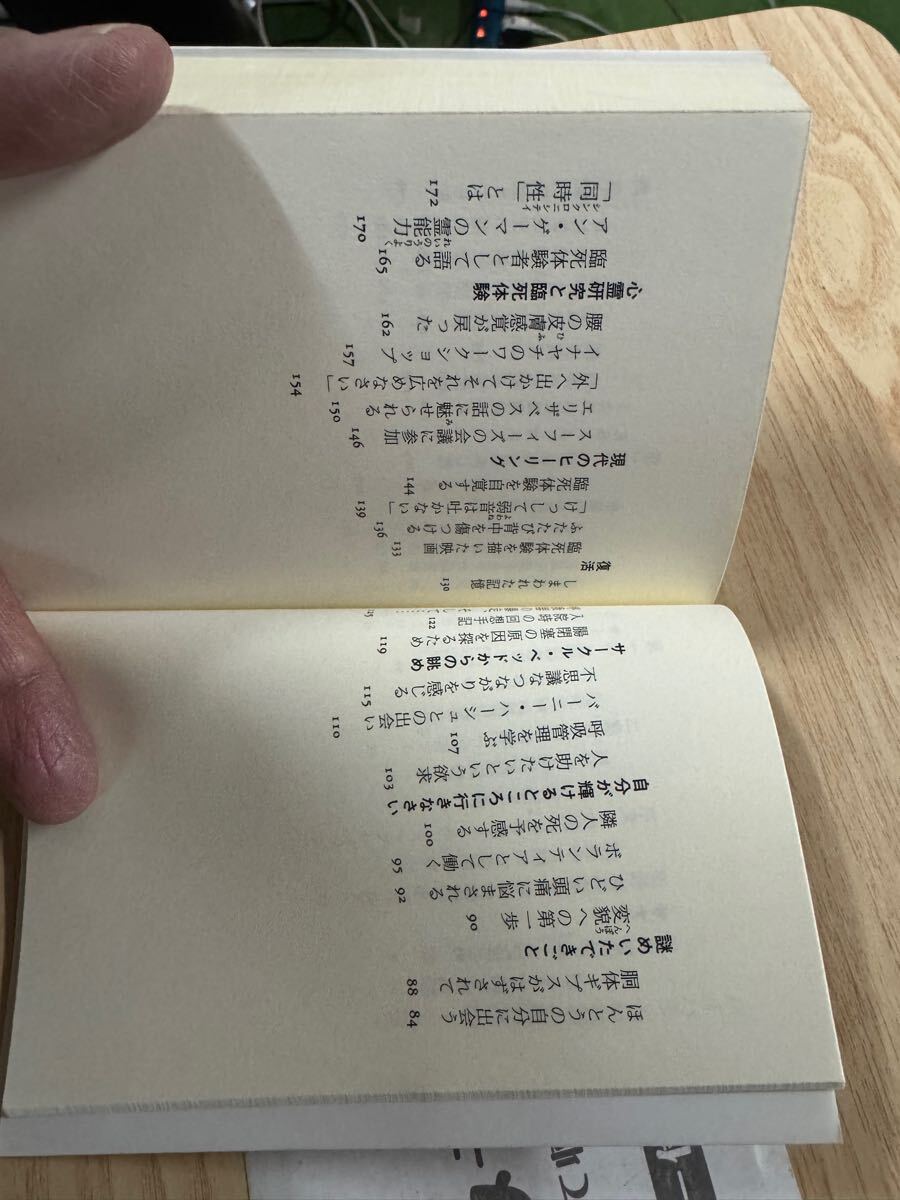 ほんとうの自分に出会う 84
胴体ギプスがはずされて 88
謎めいたできごと
へんぼう
変貌への第一歩 90
ひどい頭痛に悩まされる 92
ボランティアとして働く 95
隣人の死を予感する 100
自分が輝けるところに行きなさい
人を助けたいという欲求 103
呼吸管理を学ぶ 107
バーニー・ハーシュとの出会い 110
不思議なつながりを感じる 115
サークル・ベッドからの眺め
腸閉塞の原因を探るため 119
入院時の回想手記 122
しまわれた記憶 130
復活
臨死体験を描いた映画 133
ふたたび背中を傷つける 136
よわね
「けっして弱音は吐かない」 139
臨死体験を自覚する 144
現代のヒーリング
スーフィーズの会議に参加 146
み
エリザベスの話に魅せられる 150
「外へ出かけてそれを広めなさい」 154
イナヤチのワークショップ 157
ひふ
腰の皮膚感覚が戻った 162
心霊研究と臨死体験
臨死体験者として語る 165
れいのうりよく
アン・ゲーマンの霊能力 170
シンクロニシティ
「同時性」とは 172